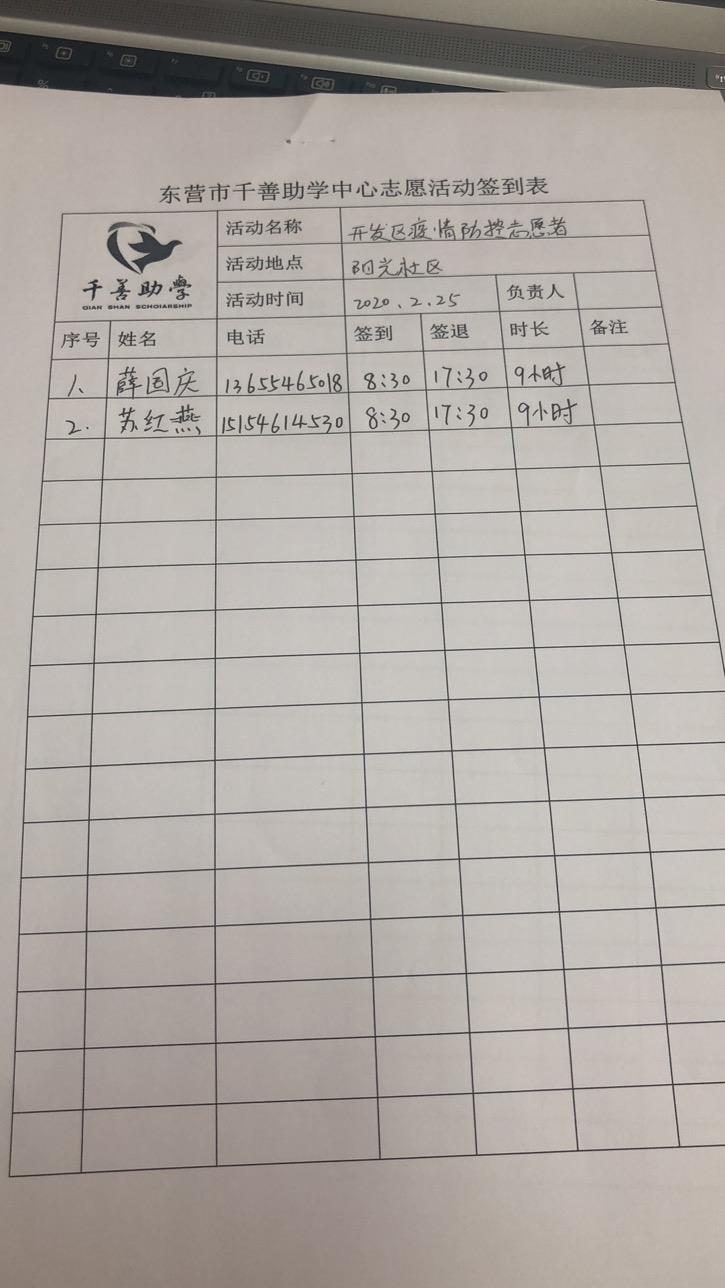 东营市千善助学中心志愿活动签到表
千善助学
QIAN SHAN SCHOIARSHIP
活动名称 开发区疫情防控志愿者
活动地点 阳光社区
活动时间 2020.2.25 负责人
序号 姓名 电话 签到 签退 时长 备注
1、 薛国庆 13655465018 8:30 17:30 9小时
2. 苏红燕 15154614530 8:30 17:30 9小时